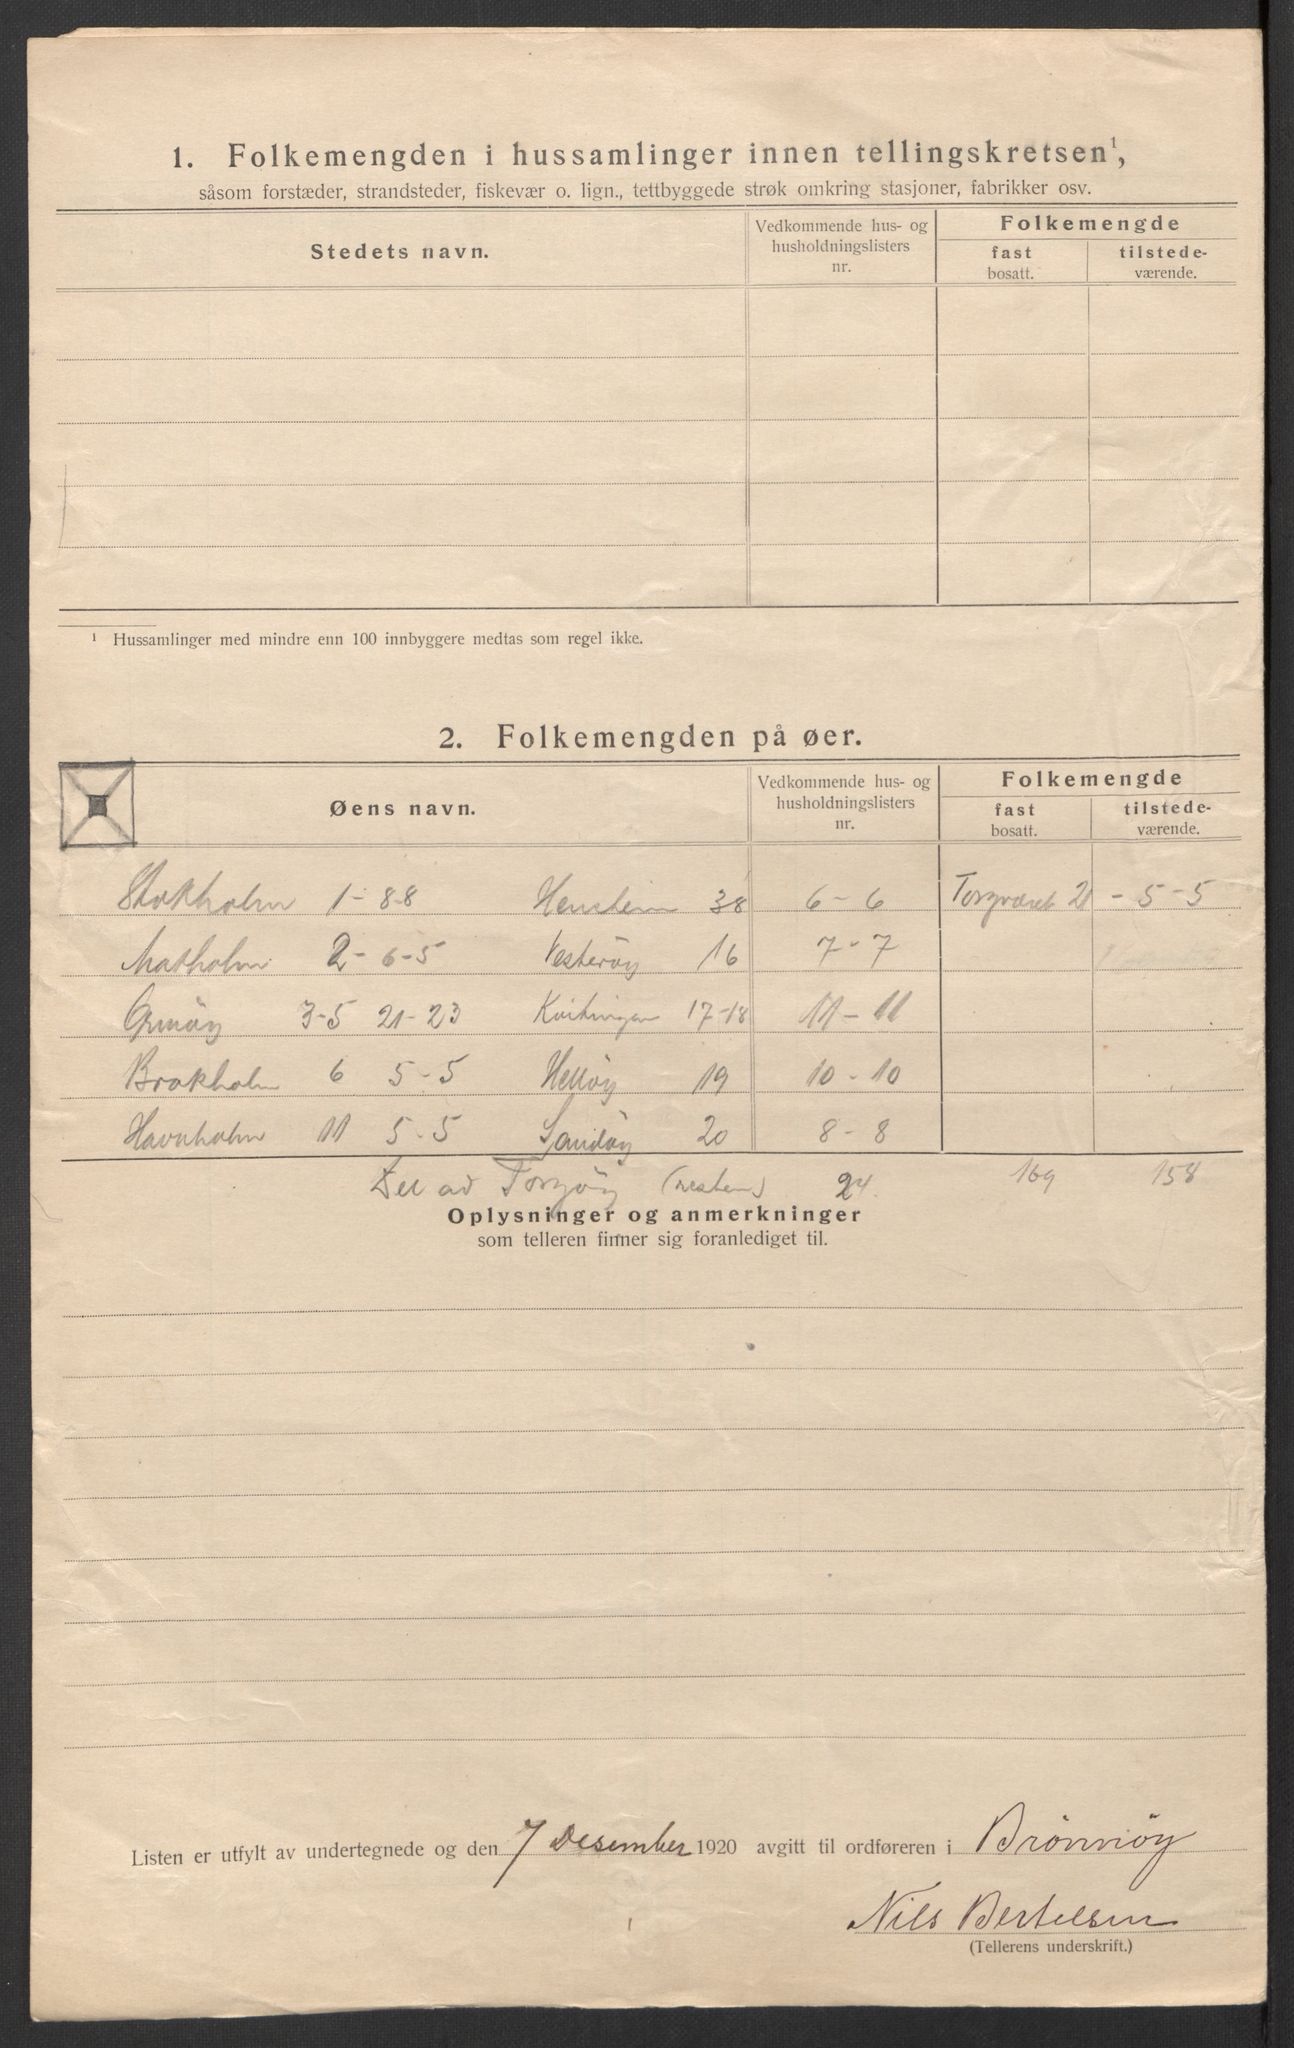 1. Folkemengden i hussamlinger innen tellingskretsen¹,
såsom forstæder, strandsteder, fiskevær o. lign., tettbyggede strøk omkring stasjoner, fabrikker osv.
Stedets navn.
Vedkommende hus- og husholdningslisters nr.
Folkemengde
fast bosatt.
tilstede-værende.
¹ Hussamlinger med mindre enn 100 innbyggere medtas som regel ikke.
2. Folkemengden på øer.
Øens navn.
Vedkommende hus- og husholdningslisters nr.
Folkemengde
fast bosatt.
tilstede-værende.
Stokholm 1 - 8-8 38 6 - 6 Torgværet 21 - 5 - 5
2 - 6-5 Vesterøy 16 7 - 7
Ormöy 3-5 21-23 Kvitingen 17-18 11 - 11
Brokholm 6 5-5 Hellöy 19 10 - 10
Havnholm 11 5-5 Sandöy 20 8 - 8
Del av Torgöy 24. 169 158
Oplysninger og anmerkninger
som telleren finner sig foranlediget til.
Listen er utfylt av undertegnede og den 7 Desember 1920 avgitt til ordføreren i Brønnøy
Nils Bertelsen
(Tellerens underskrift.)